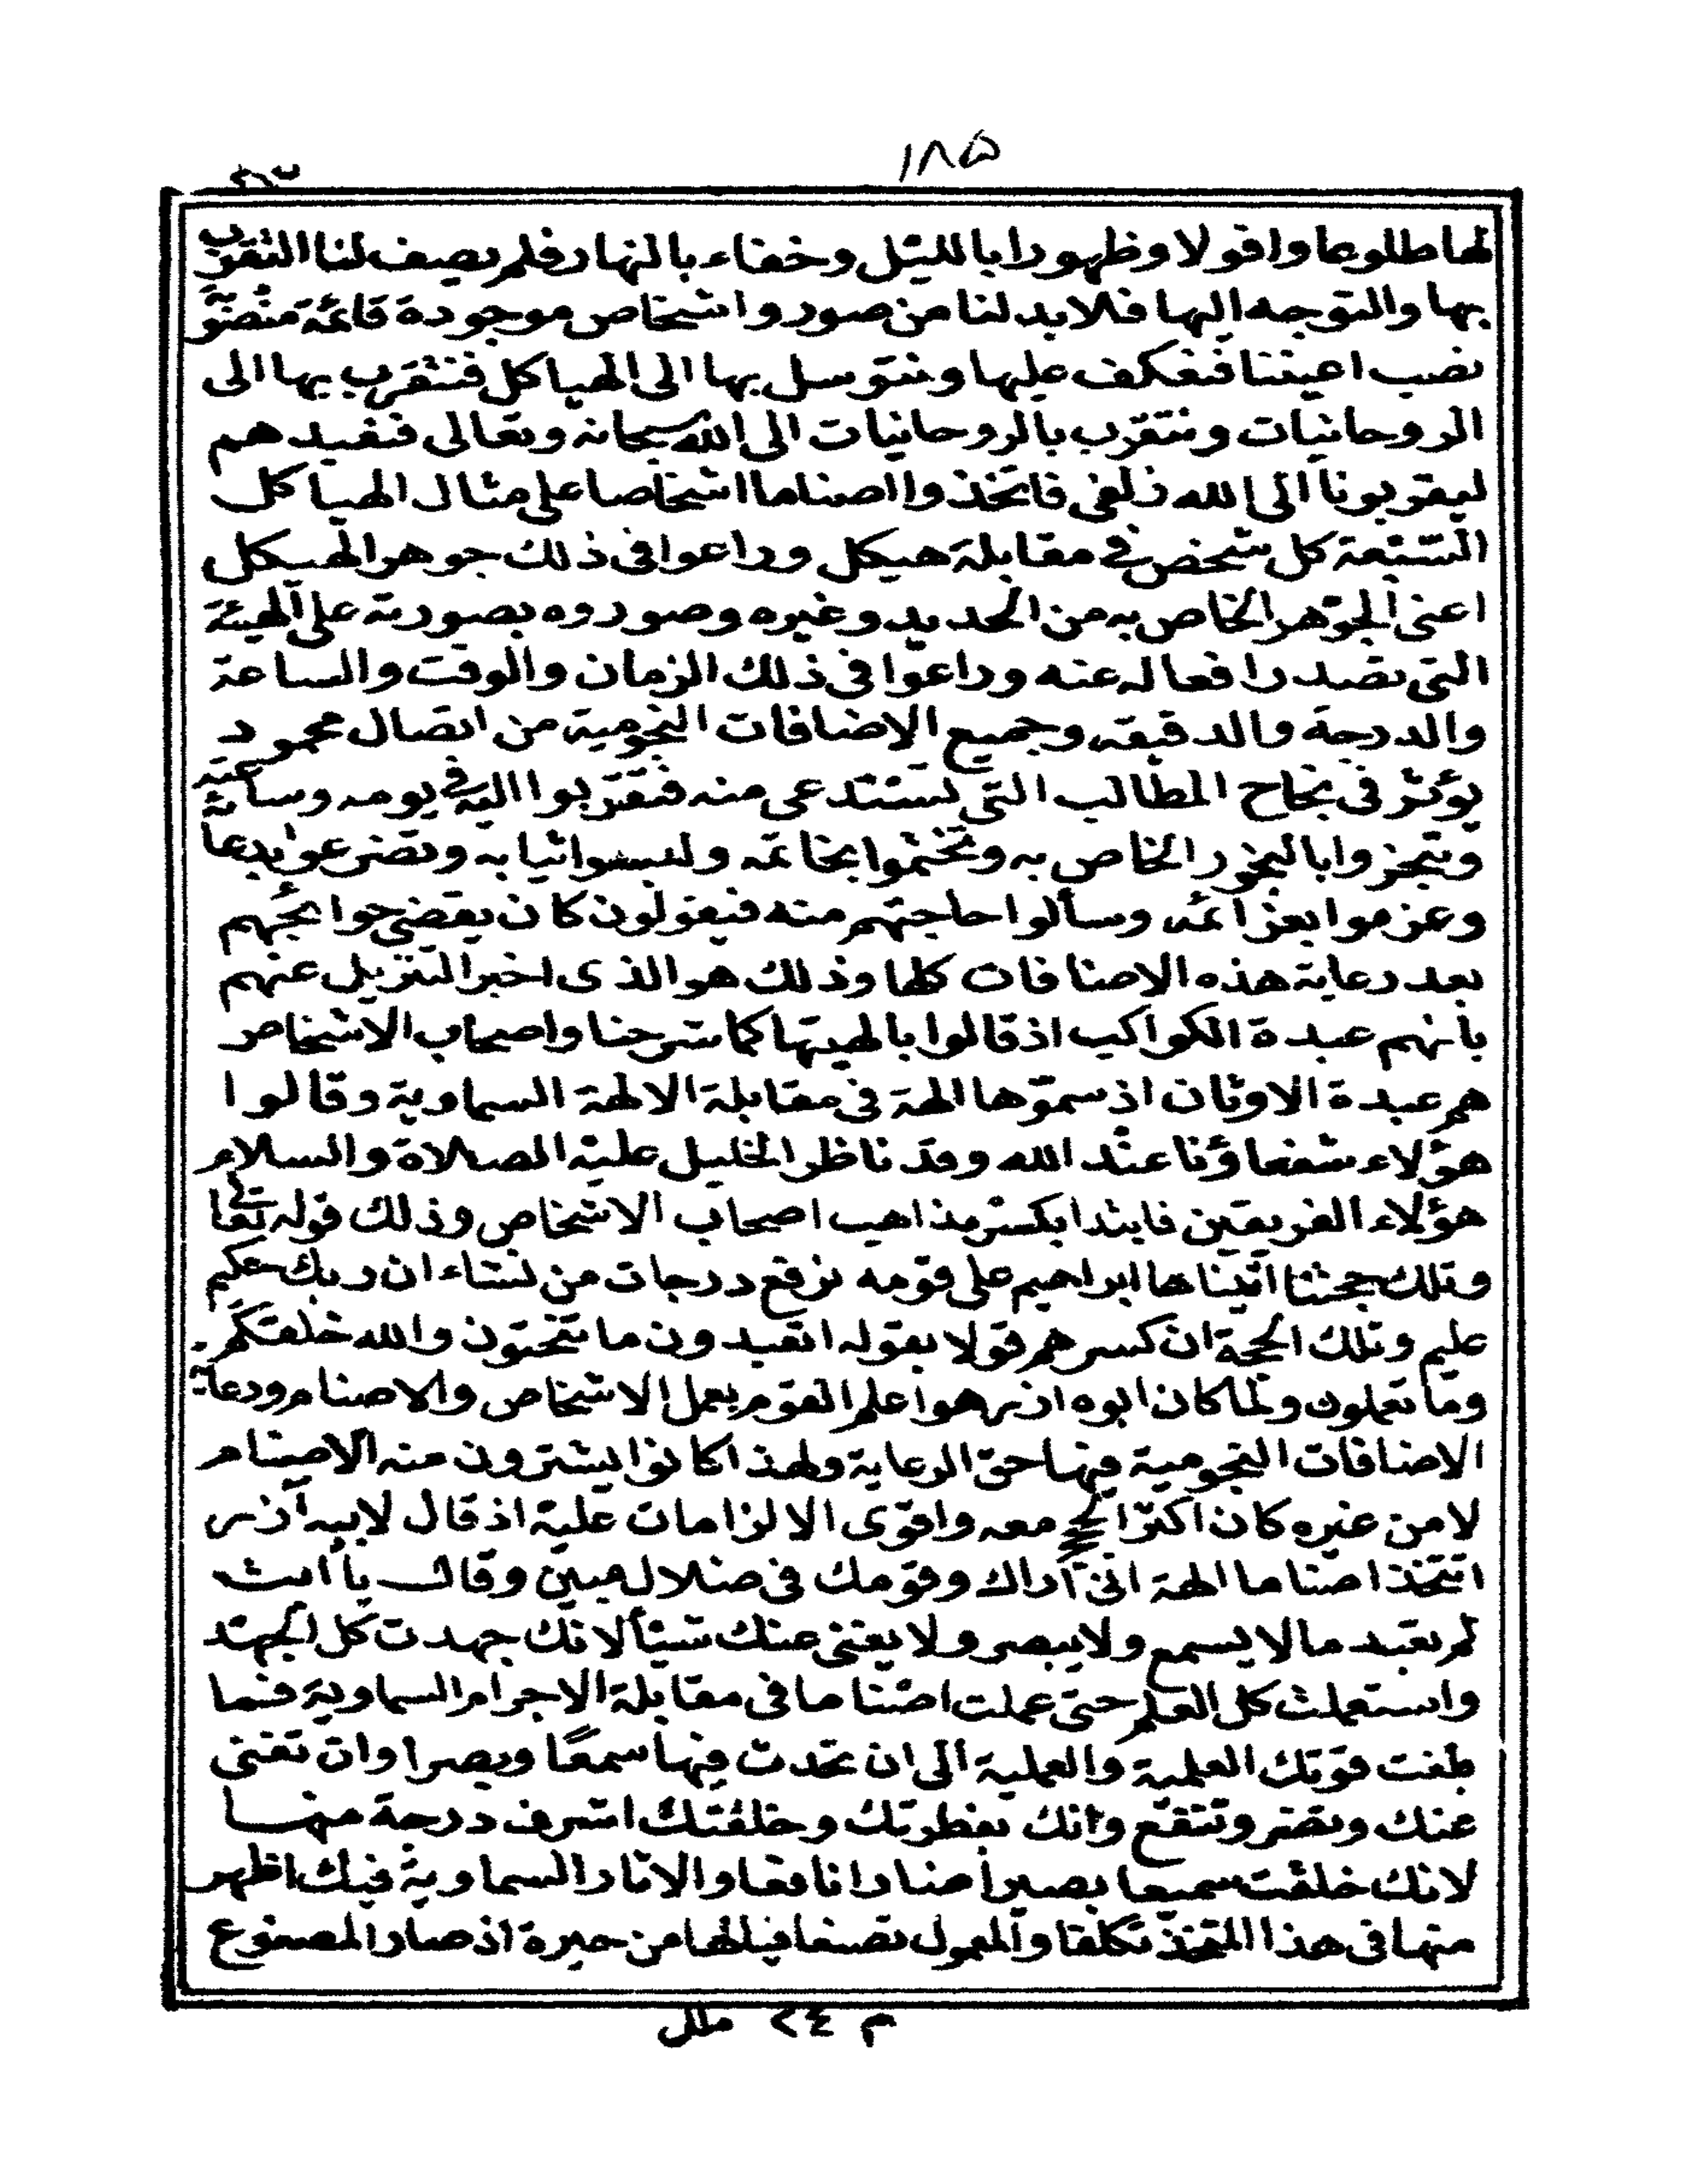 ١٨٥
لها طلوعا وافولا وظهورا بالليل وخفاء بالنهار فلم يصف لنا التقرب
بها والتوجه اليها فلا بد لنا من صور واشخاص موجودة قائمة منصوبة
نصب اعيننا فنعكف عليها ونتوسل بها الى الهياكل فنتقرب بها الى
الروحانيات ونتقرب بالروحانيات الى الله سبحانه وتعالى فنعبدهم
ليقربونا الى الله زلفى فاتخذوا اصناما اشخاصا على مثال الهياكل
السبعة كل شخص في مقابلة هيكل وراعوا في ذلك جوهر الهيكل
اعنى الجوهر الخاص به من الحديد وغيره وصوروه بصورته على الهيئة
التى تصدر افعاله عنه وراعوا في ذلك الزمان والوقت والساعة
والدرجة والدقيقة وجميع الاضافات النجومية من اتصال محمود
يؤثر في نجاح المطالب التى تستدعى منه فتقربوا اليه في يومه وساعته
وتبخروا بالبخور الخاص به وتختموا بخاتمه ولبسوا ثيابه وتضرعوا بدعائه
وعزموا بعزائمه وسألوا حاجتهم منه فيقولون كان يقضى حوائجهم
بعد رعاية هذه الاضافات كلها وذلك هو الذى اخبر التنزيل عنهم
بأنهم عبدة الكواكب اذ قالوا بالهيتها كما شرحنا واصحاب الاشخاص
هم عبدة الاوثان اذ سموها الهة في مقابلة الالهة السماوية وقالوا
هؤلاء شفعاؤنا عند الله وقد ناظر الخليل عليه الصلاة والسلام
هؤلاء الفريقين فابتدا بكسر مذاهب اصحاب الاشخاص وذلك قوله تعالى
وتلك حجتنا اتيناها ابراهيم على قومه نرفع درجات من نشاء ان ربك حكيم
عليم وتلك الحجة ان كسرهم قولا بقوله اتعبدون ما تنحتون والله خلقكم
وما تعملون ولما كان ابوه ازر هو اعلم القوم بعمل الاشخاص والاصنام ورعاية
الاضافات النجومية فيها حق الرعاية ولهذا كانوا يشترون منه الاصنام
لا من غيره كان اكثر الحجج معه واقوى الالزامات عليه اذ قال لابيه آزر
اتتخذ اصناما الهة انى اراك وقومك في ضلال مبين وقال يا أبت
لم تعبد ما لا يسمع ولا يبصر ولا يغنى عنك شيئا لانك جهدت كل الجهد
واستعملت كل العلم حتى عملت اصناما في مقابلة الاجرام السماوية فما
بلغت قوتك العلمية والعملية الى ان تحدث فيها سمعا وبصرا وان تغنى
عنك وتضر وتنفع وانك بفطرتك وخلقتك اشرف درجة منها
لانك خلقت سميعا بصيرا ضارا نافعا والاثار السماوية فيك اظهر
منها في هذا المتخذ تكلفا والمعمول تصنعا فيالها من حيرة اذ صار المصنوع
م ٢٤ ملل